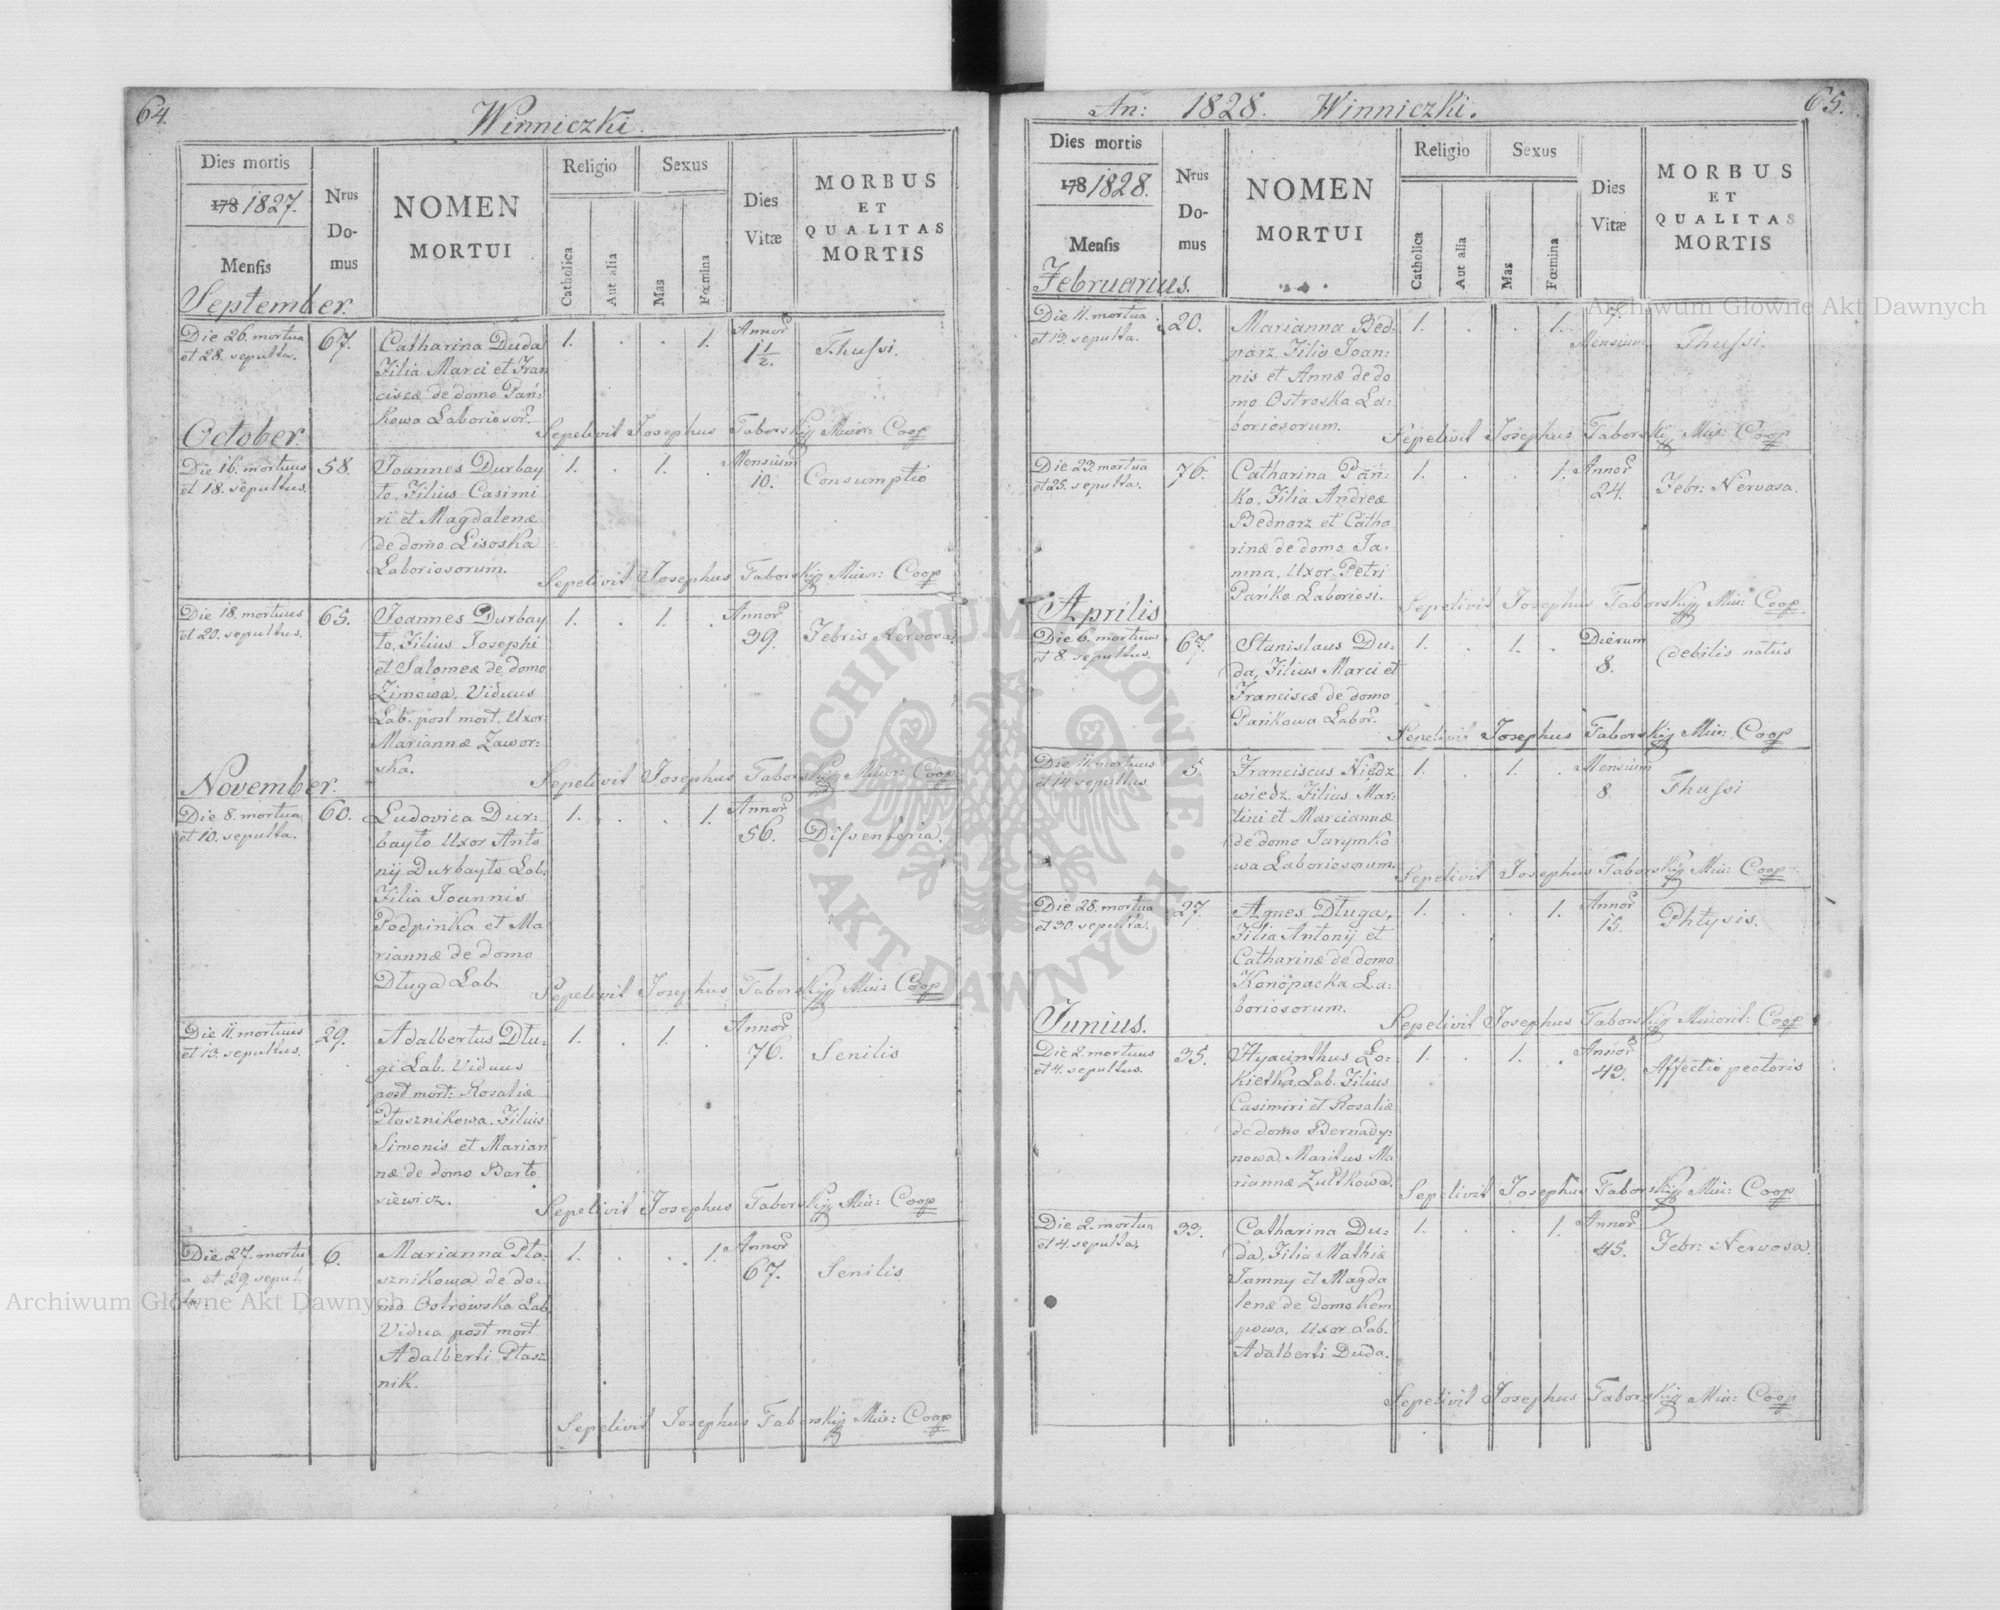 64.
Winniczki.
Dies mortis
178 1827.
Mensis
Nrus
Do-
mus
NOMEN
MORTUI
Religio
Catholica
Aut alia
Sexus
Mas
Fœmina
Dies
Vitæ
MORBUS
ET
QUALITAS
MORTIS
September.
Die 26. mortua
et 28. sepulta.
67.
Catharina Duda
Filia Marci et Fran
ciscæ de domo Pań:
kowa Laboriosor.
1. . . 1.
Annor
1 1/2.
Thussi.
Sepelivit Josephus Taborskij Minor: Coop
October.
Die 16. mortuus
et 18. sepultus.
58.
Joannes Durbay
to, Filius Casimi
ri et Magdalenæ
de domo Lisoska
Laboriosorum.
1. . 1. .
Mensium
10.
Consumptio
Sepelivit Josephus Taborskij Minor: Coop
Die 18. mortuus
et 20. sepultus.
65.
Joannes Durbay
to, Filius Josephi
et Salomeæ de domo
Zimowa, Viduus
Lab. post mort. Uxor:
Mariannæ Zawor:
ska.
1. . 1. .
Annor
39.
Febris Nervosa.
Sepelivit Josephus Taborskij Minor: Coop
November.
Die 8. mortua
et 10. sepulta.
60.
Ludovica Dur:
bayto Uxor Anto
nij Durbayto Lab.
Filia Joannis
Podpinka et Ma
riannæ de domo
Długa Lab.
1. . . 1.
Annor
56.
Dissenteria.
Sepelivit Josephus Taborskij Min: Coop
Die 11. mortuus
et 13. sepultus.
29.
Adalbertus Dłu:
gi Lab. Viduus
post mort: Rosaliæ
Ptasznikowa. Filius
Simonis et Marian
næ de domo Barto
siewicz.
1. . 1. .
Annor
76.
Senilis
Sepelivit Josephus Taborskij Min: Coop
Die 27. mortu
a et 29. sepul
ta.
6.
Marianna Pta:
sznikowa de do:
mo Ostrowska Lab.
Vidua post mort
Adalberti Ptasz
nik.
1. . . 1.
Annor
67.
Senilis
Sepelivit Josephus Taborskij Min: Coop
An: 1828. Winniczki.
65.
Dies mortis
178 1828.
Mensis
Nrus
Do-
mus
NOMEN
MORTUI
Religio
Catholica
Aut alia
Sexus
Mas
Fœmina
Dies
Vitæ
MORBUS
ET
QUALITAS
MORTIS
Februarius.
Die 11. mortua
et 13. sepulta.
20.
Marianna Bed:
narz, Filia Joan:
nis et Annæ de do
mo Ostroska La:
boriosorum.
1. . . 1.
7.
Mensium
Thussi.
Sepelivit Josephus Taborskij Min: Coop
Die 23. mortua
et 25. sepulta.
76.
Catharina Pań:
ko, Filia Andreæ
Bednarz et Catha
rinæ de domo Ja:
mna, Uxor Petri
Pańko Laboriosi.
1. . . 1.
Annor
24.
Febr: Nervosa.
Sepelivit Josephus Taborskij Min: Coop
Aprilis
Die 6. mortuus
et 8. sepultus.
67.
Stanislaus Du:
da, Filius Marci et
Franciscæ de domo
Pańkowa Labor.
1. . 1. .
Dierum
8.
debilis natus
Sepelivit Josephus Taborskij Min: Coop
Die 11. mortuus
et 14. sepultus
5.
Franciscus Niedz
wiedz. Filius Mar:
tini et Mariannæ
de domo Jarymko
wa Laboriosorum.
1. . 1. .
Mensium
8.
Thussi
Sepelivit Josephus Taborskij Min: Coop
Die 28. mortua
et 30. sepulta.
27.
Agnes Długa,
Filia Antonij et
Catharinæ de domo
Konopacka La:
boriosorum.
1. . . 1.
Annor
15.
Phtysis.
Sepelivit Josephus Taborskij Minorit: Coop
Junius.
Die 2. mortuus
et 4. sepultus.
35.
Hyacinthus Ło:
kietka, Lab. Filius
Casimiri et Rosaliæ
de domo Bernady:
nowa Maritus Ma
riannæ Zultkowa.
1. . 1. .
Annor
43.
Affectio pectoris
Sepelivit Josephus Taborskij Min: Coop
Die 2. mortua
et 4. sepulta.
33.
Catharina Du:
da, Filia Mathiæ
Jamny et Magda
lenæ de domo Kem
powa, Uxor Lab.
Adalberti Duda.
1. . . 1.
Annor
45.
Febr: Nervosa.
Sepelivit Josephus Taborskij Min: Coop
Archiwum Główne Akt Dawnych
Archiwum Główne Akt Dawnych
ARCHIWUM GŁÓWNE · AKT DAWNYCH ·